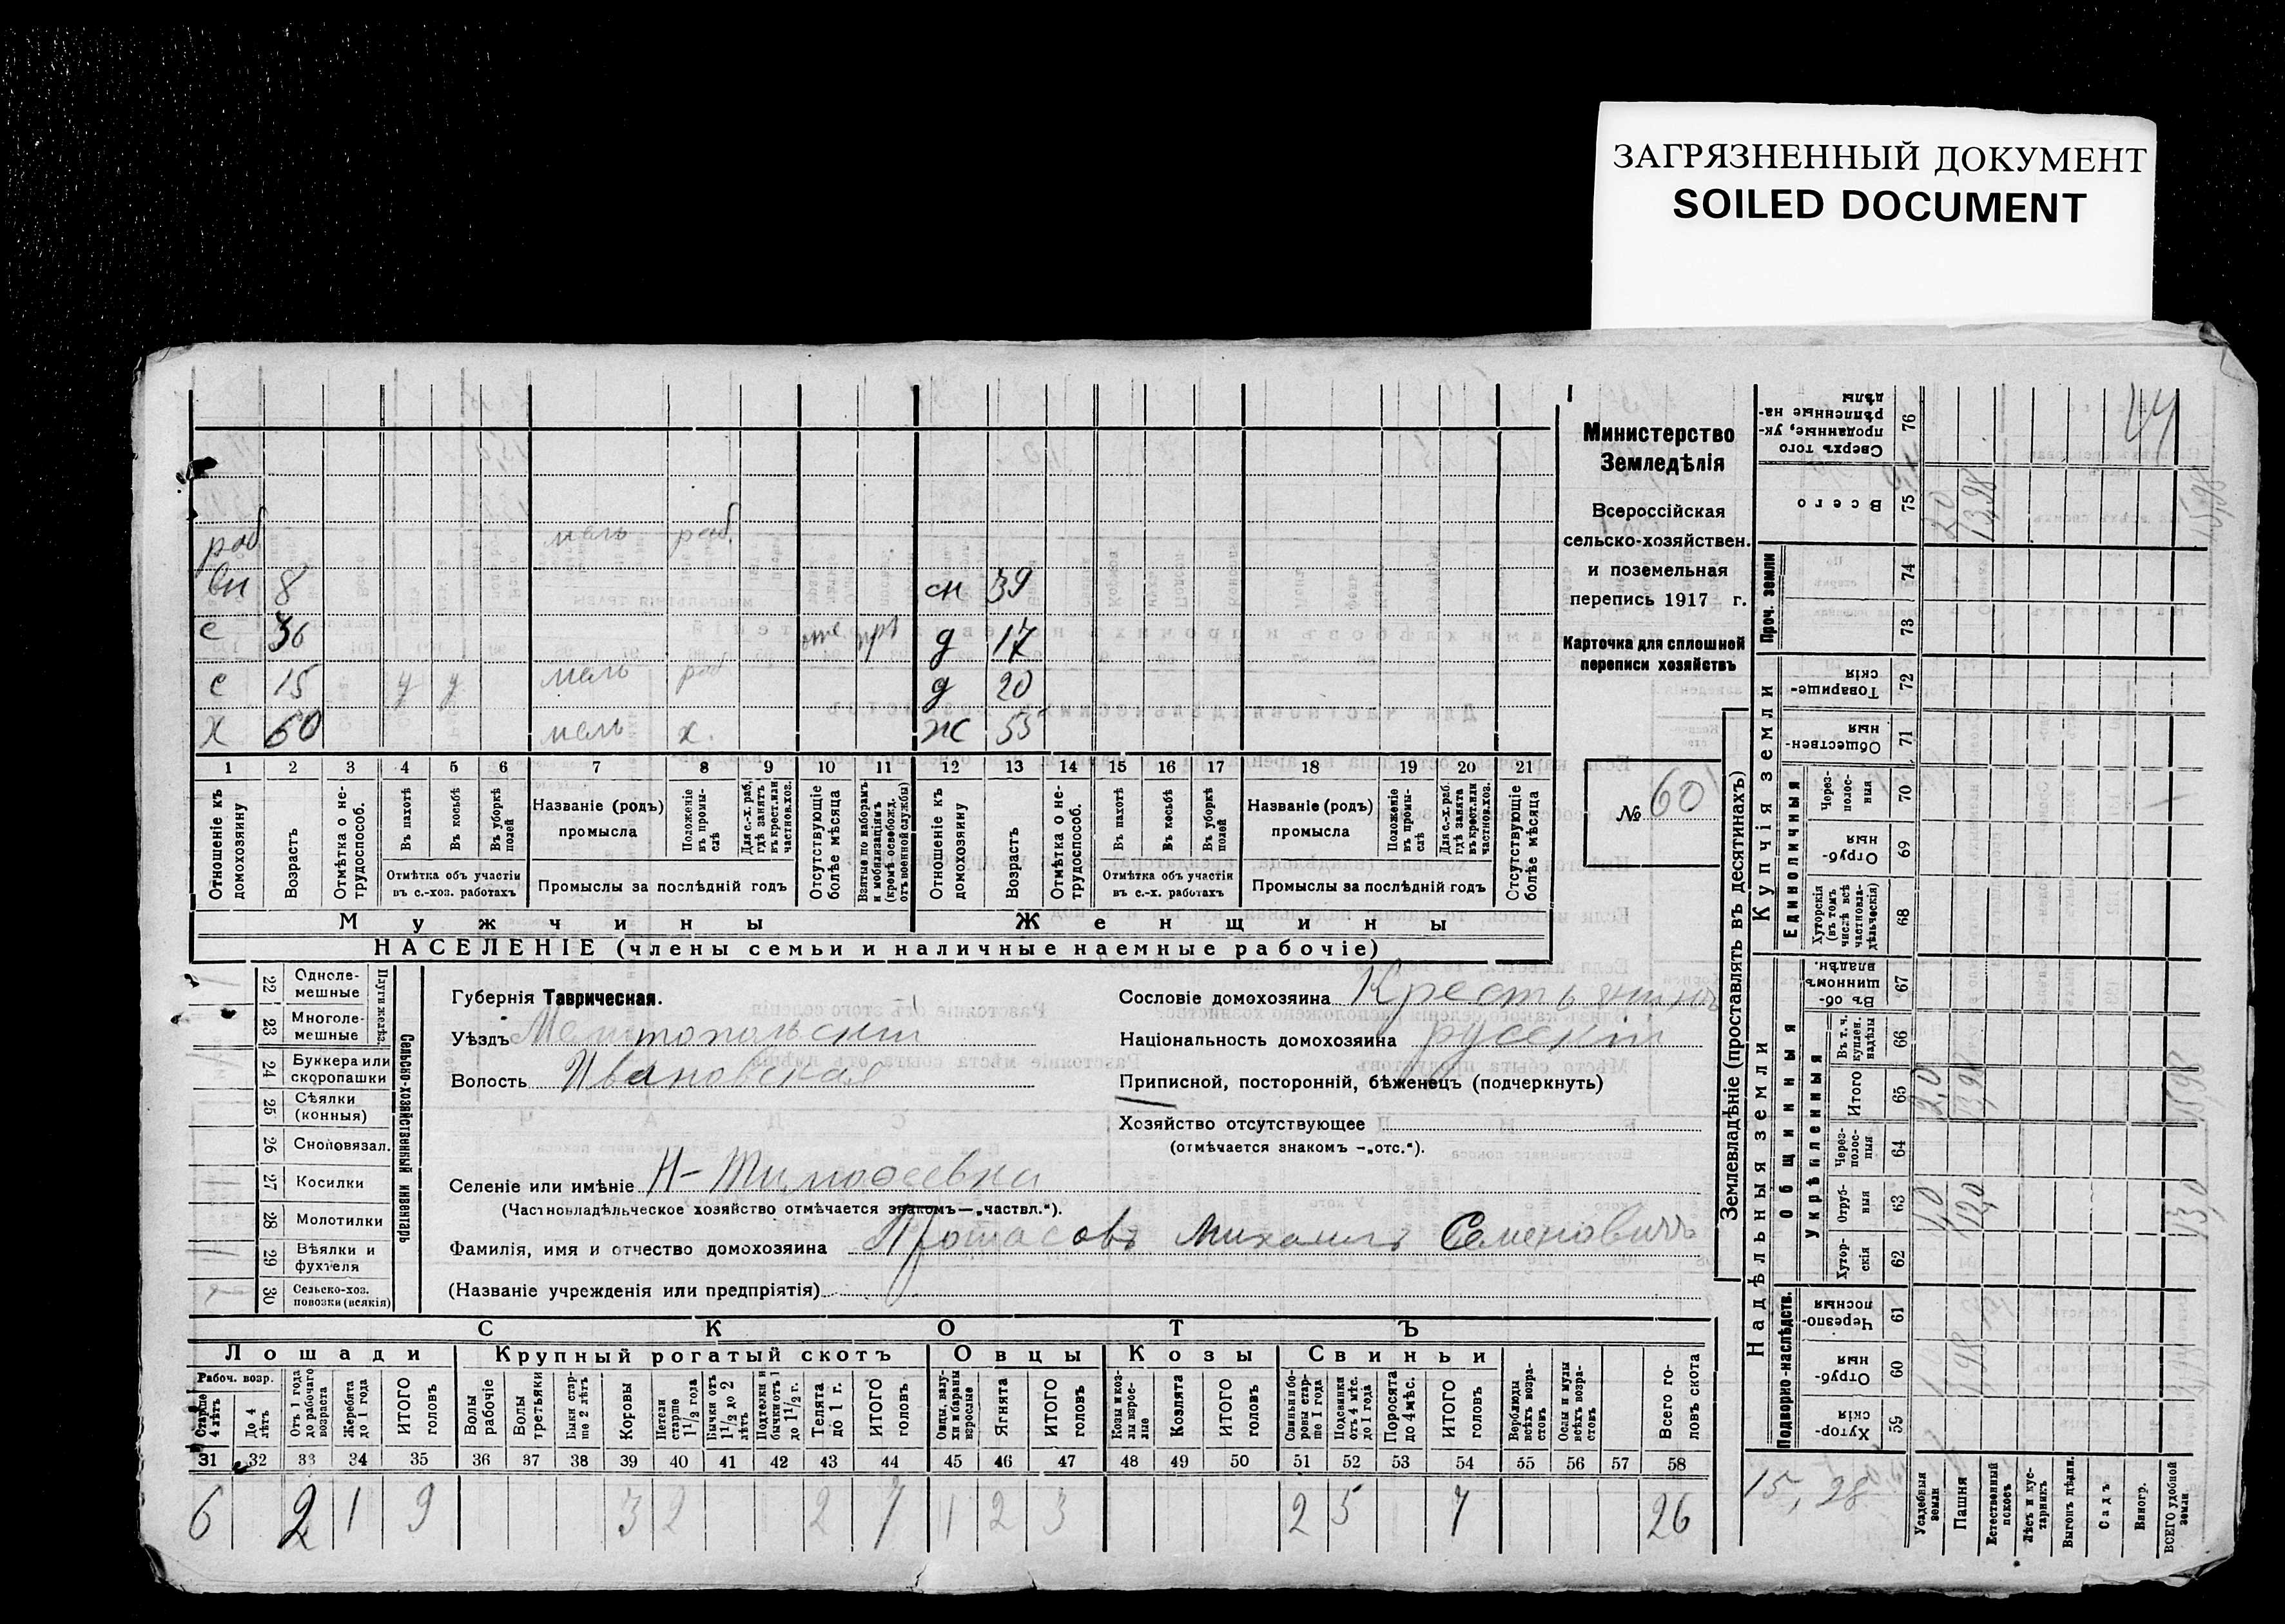 ЗАГРЯЗНЕННЫЙ ДОКУМЕНТ
SOILED DOCUMENT
Министерство
Земледѣлія
Всероссійская
сельско-хозяйствен.
и поземельная
перепись 1917 г.
Карточка для сплошной
переписи хозяйствъ
№ 60
раб раб.
вн 8 сн 39
с 36 д 17
с 15 у у раб д 20
х 60 х. ж 55
1 2 3 4 5 6 7 8 9 10 11 12 13 14 15 16 17 18 19 20 21
Отношеніе къ домохозяину
Возрастъ
Отмѣтка о не-трудоспособ.
Въ пахотѣ
Въ косьбѣ
Въ уборкѣ полей
Отмѣтка объ участіи
въ с.-хоз. работахъ
Названіе (родъ)
промысла
Положеніе въ промы-слѣ
Для с.-х. раб. гдѣ занятъ въ крест. или частнов. хоз.
Промыслы за послѣдній годъ
Отсутствующіе болѣе мѣсяца
Взятые по наборамъ и мобилизаціямъ (кромѣ освобожд. отъ военной службы)
Отношеніе къ домохозяину
Возрастъ
Отмѣтка о не-трудоспособ.
Въ пахотѣ
Въ косьбѣ
Въ уборкѣ полей
Отмѣтка объ участіи
въ с.-х. работахъ
Названіе (родъ)
промысла
Положеніе въ промы-слѣ
Для с.-х. раб. гдѣ занята въ крест. или частнов. хоз.
Промыслы за послѣдній годъ
Отсутствующіе болѣе мѣсяца
Мужчины Женщины
НАСЕЛЕНІЕ (члены семьи и наличные наемные рабочіе)
22 Одноле-мешные
23 Многоле-мешные
Плуги желѣз.
24 Буккера или скоропашки
25 Сѣялки (конныя)
26 Сноповязал.
27 Косилки
28 Молотилки
29 Вѣялки и фухтеля
30 Сельско-хоз. повозки (всякія)
Сельско-хозяйственный инвентарь
Губернія Таврическая.
Уѣздъ Мелитопольскій
Волость Ивановская
Селеніе или имѣніе Н-Тимофеевка
(Частновладѣльческое хозяйство отмѣчается знакомъ—„частвл.“).
Фамилія, имя и отчество домохозяина Протасовъ Михаилъ Семеновичъ
(Названіе учрежденія или предпріятія)
Сословіе домохозяина Крестьянинъ
Національность домохозяина русскій
Приписной, посторонній, бѣженецъ (подчеркнуть)
Хозяйство отсутствующее
(отмѣчается знакомъ -„отс.“).
СКОТЪ
Лошади Крупный рогатый скотъ Овцы Козы Свиньи
Рабоч. возр.
Старше 4 лѣтъ
До 4 лѣтъ
Отъ 1 года до рабочаго возраста
Жеребята до 1 года
ИТОГО головъ
Волы рабочіе
Волы третьяки
Быки стар-ше 2 лѣтъ
Коровы
Нетели старше 1 1/2 года
Бычки отъ 1 1/2 до 2 лѣтъ
Подтелки и бычки отъ 1 до 1 1/2 г.
Телята до 1 г.
ИТОГО головъ
Овцы, валу-хи и бараны взрослые
Ягнята
ИТОГО головъ
Козы и коз-лы взрос-лые
Козлята
ИТОГО головъ
Свиньи и бо-ровы стар-ше 1 года
Подсвинки отъ 4 мѣс. до 1 года
Поросята до 4 мѣс.
ИТОГО головъ
Верблюды всѣхъ возра-стовъ
Ослы и мулы всѣхъ возра-стовъ
Всего го-ловъ скота
31 32 33 34 35 36 37 38 39 40 41 42 43 44 45 46 47 48 49 50 51 52 53 54 55 56 57 58
6 2 1 9 3 2 2 7 1 2 3 2 5 7 26
Землевладѣніе (проставлять въ десятинахъ)
Надѣльныя земли Купчія земли Проч. земли
Подворно-наслѣдств.
Общинныя
Укрѣпленныя
Единоличныя
Хутор-скія 59
Отруб-ныя 60
Черезпо-лосныя 61
Хутор-скія 62
Отруб-ныя 63
Через-полос-ныя 64
Итого 65
Въ т. ч. куплен. надѣлы 66
Въ об-щинномъ владѣн. 67
Хуторскія (въ томъ числѣ всѣ частновла-дѣльческія) 68
Отруб-ныя 69
Через-полос-ныя 70
Обществен-ныя 71
Товарище-скія 72
73
74
Всего 75
Сверхъ того проданные, ук-рѣпленные на-дѣлы 76
15,28
Усадебныя земли 2,0 2,0
Пашня 1,98 12,0 13,98 13,98
Естественный покосъ
Лѣсъ и кус-тарникъ
Выгонъ дѣлян.
Садъ
Виногр.
ВСЕГО удобной земли 13,0 15,98 15,98